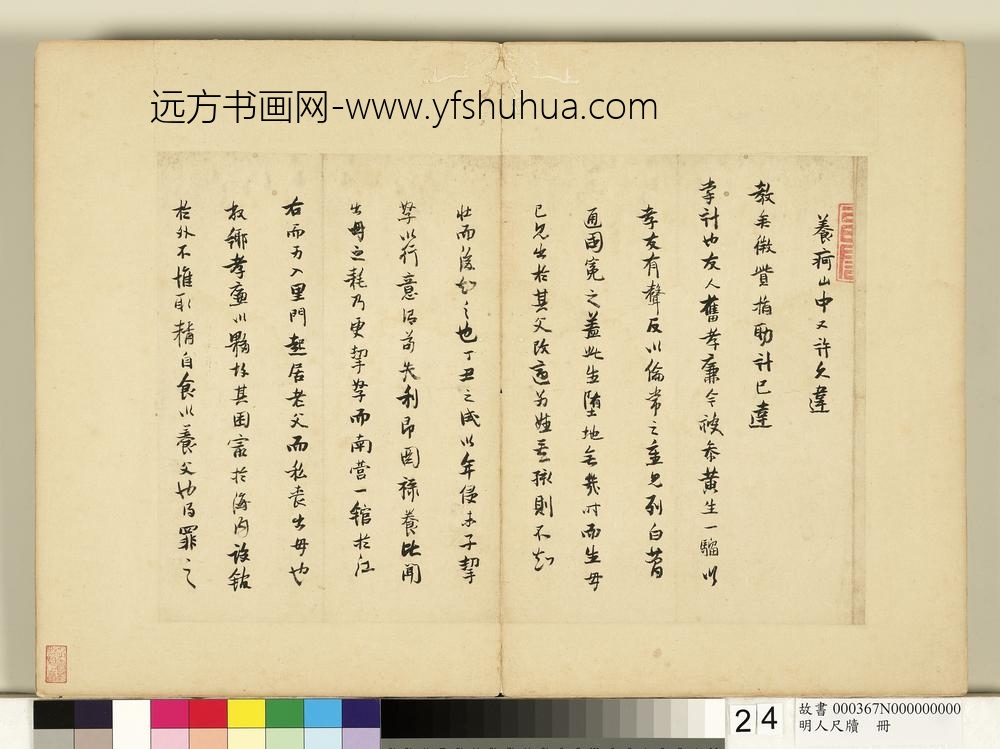 远方书画网-www.yfshuhua.com
養疴山中又許久違
教矣微貲捐助計已達
掌計也友人舊孝廉今被參黃生一騮以
孝友有聲反以倫常之重也列白簡
通國冤之蓋此生墮地無幾时而生母
已先出於其父改適為姓則不知
壯而後知之也丁丑之歲以年侵未子挈
孥以行意沿苟失利即圖祿養比聞
出母之耗乃更挈孥而南营一館於江
右而万入里門起居老父而私喪出母也
故鄉孝廉以縣技其困家於海內設館
於外不惟取精自食以養父也乃罪之
24
故書 000367N000000000
明人尺牘 冊